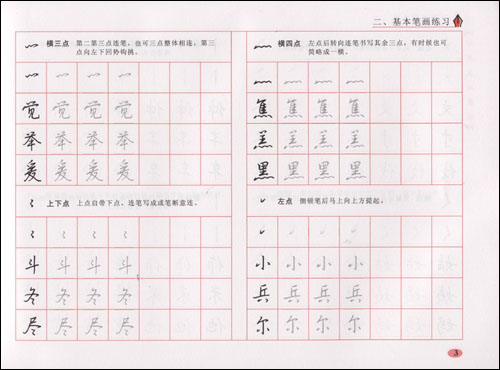 二、基本笔画练习
横三点 第二第三点连笔，也可三点整体相连，第三
点向左下回势钩挑。
觉 觉 觉 觉
举 举 举 举
爰 爰 爰 爰
上下点 上点自带下点，连笔写成或笔断意连。
斗 斗 斗 斗
冬 冬 冬 冬
尽 尽 尽 尽
横四点 左点后转向连笔书写其余三点，有时候也可
简略成一横。
焦 焦 焦 焦
羔 羔 羔 羔
黑 黑 黑 黑
左点 侧锋笔后马上向上方提起。
小 小 小 小
兵 兵 兵 兵
尔 尔 尔 尔
3